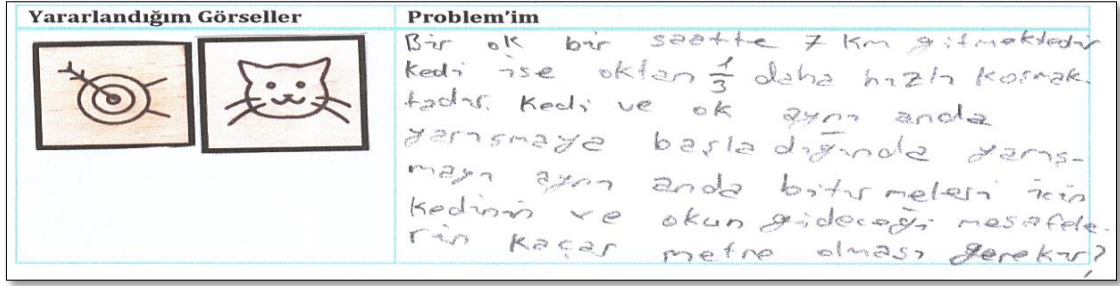 Yararlandığım Görseller
Problem'im
Bir ok bir saatte 7 km gitmektedir
kedi ise oktan 1/3 daha hızlı koşmak-
tadır. Kedi ve ok aynı anda
yarışmaya başladığında yarış-
mayı aynı anda bitirmeleri için
kedinin ve okun gideceği mesafele-
rin kaçar metre olması gerekir?